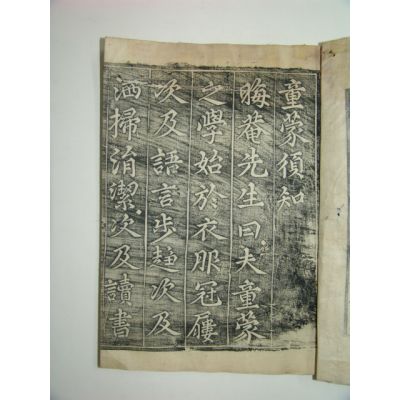 童蒙須知
晦菴先生曰夫童蒙
之學始於衣服冠屨
次及語言步趍次及
洒掃涓潔次及讀書